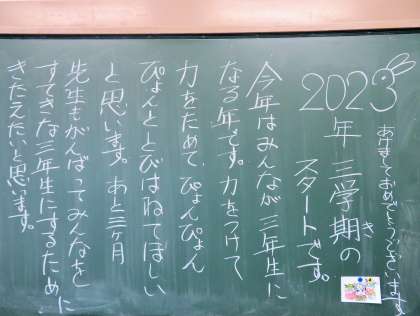 あけましておめでとうございます
2023
年 三学期の
き
スタートです。
今年はみんなが三年生に
なる年です。力をつけて
力をためて、ぴょんぴょん
ぴょんととびはねてほしい
と思います。あと三ヶ月
先生もがんばってみんなを
すてきな三年生にするために
きたえたいと思います。